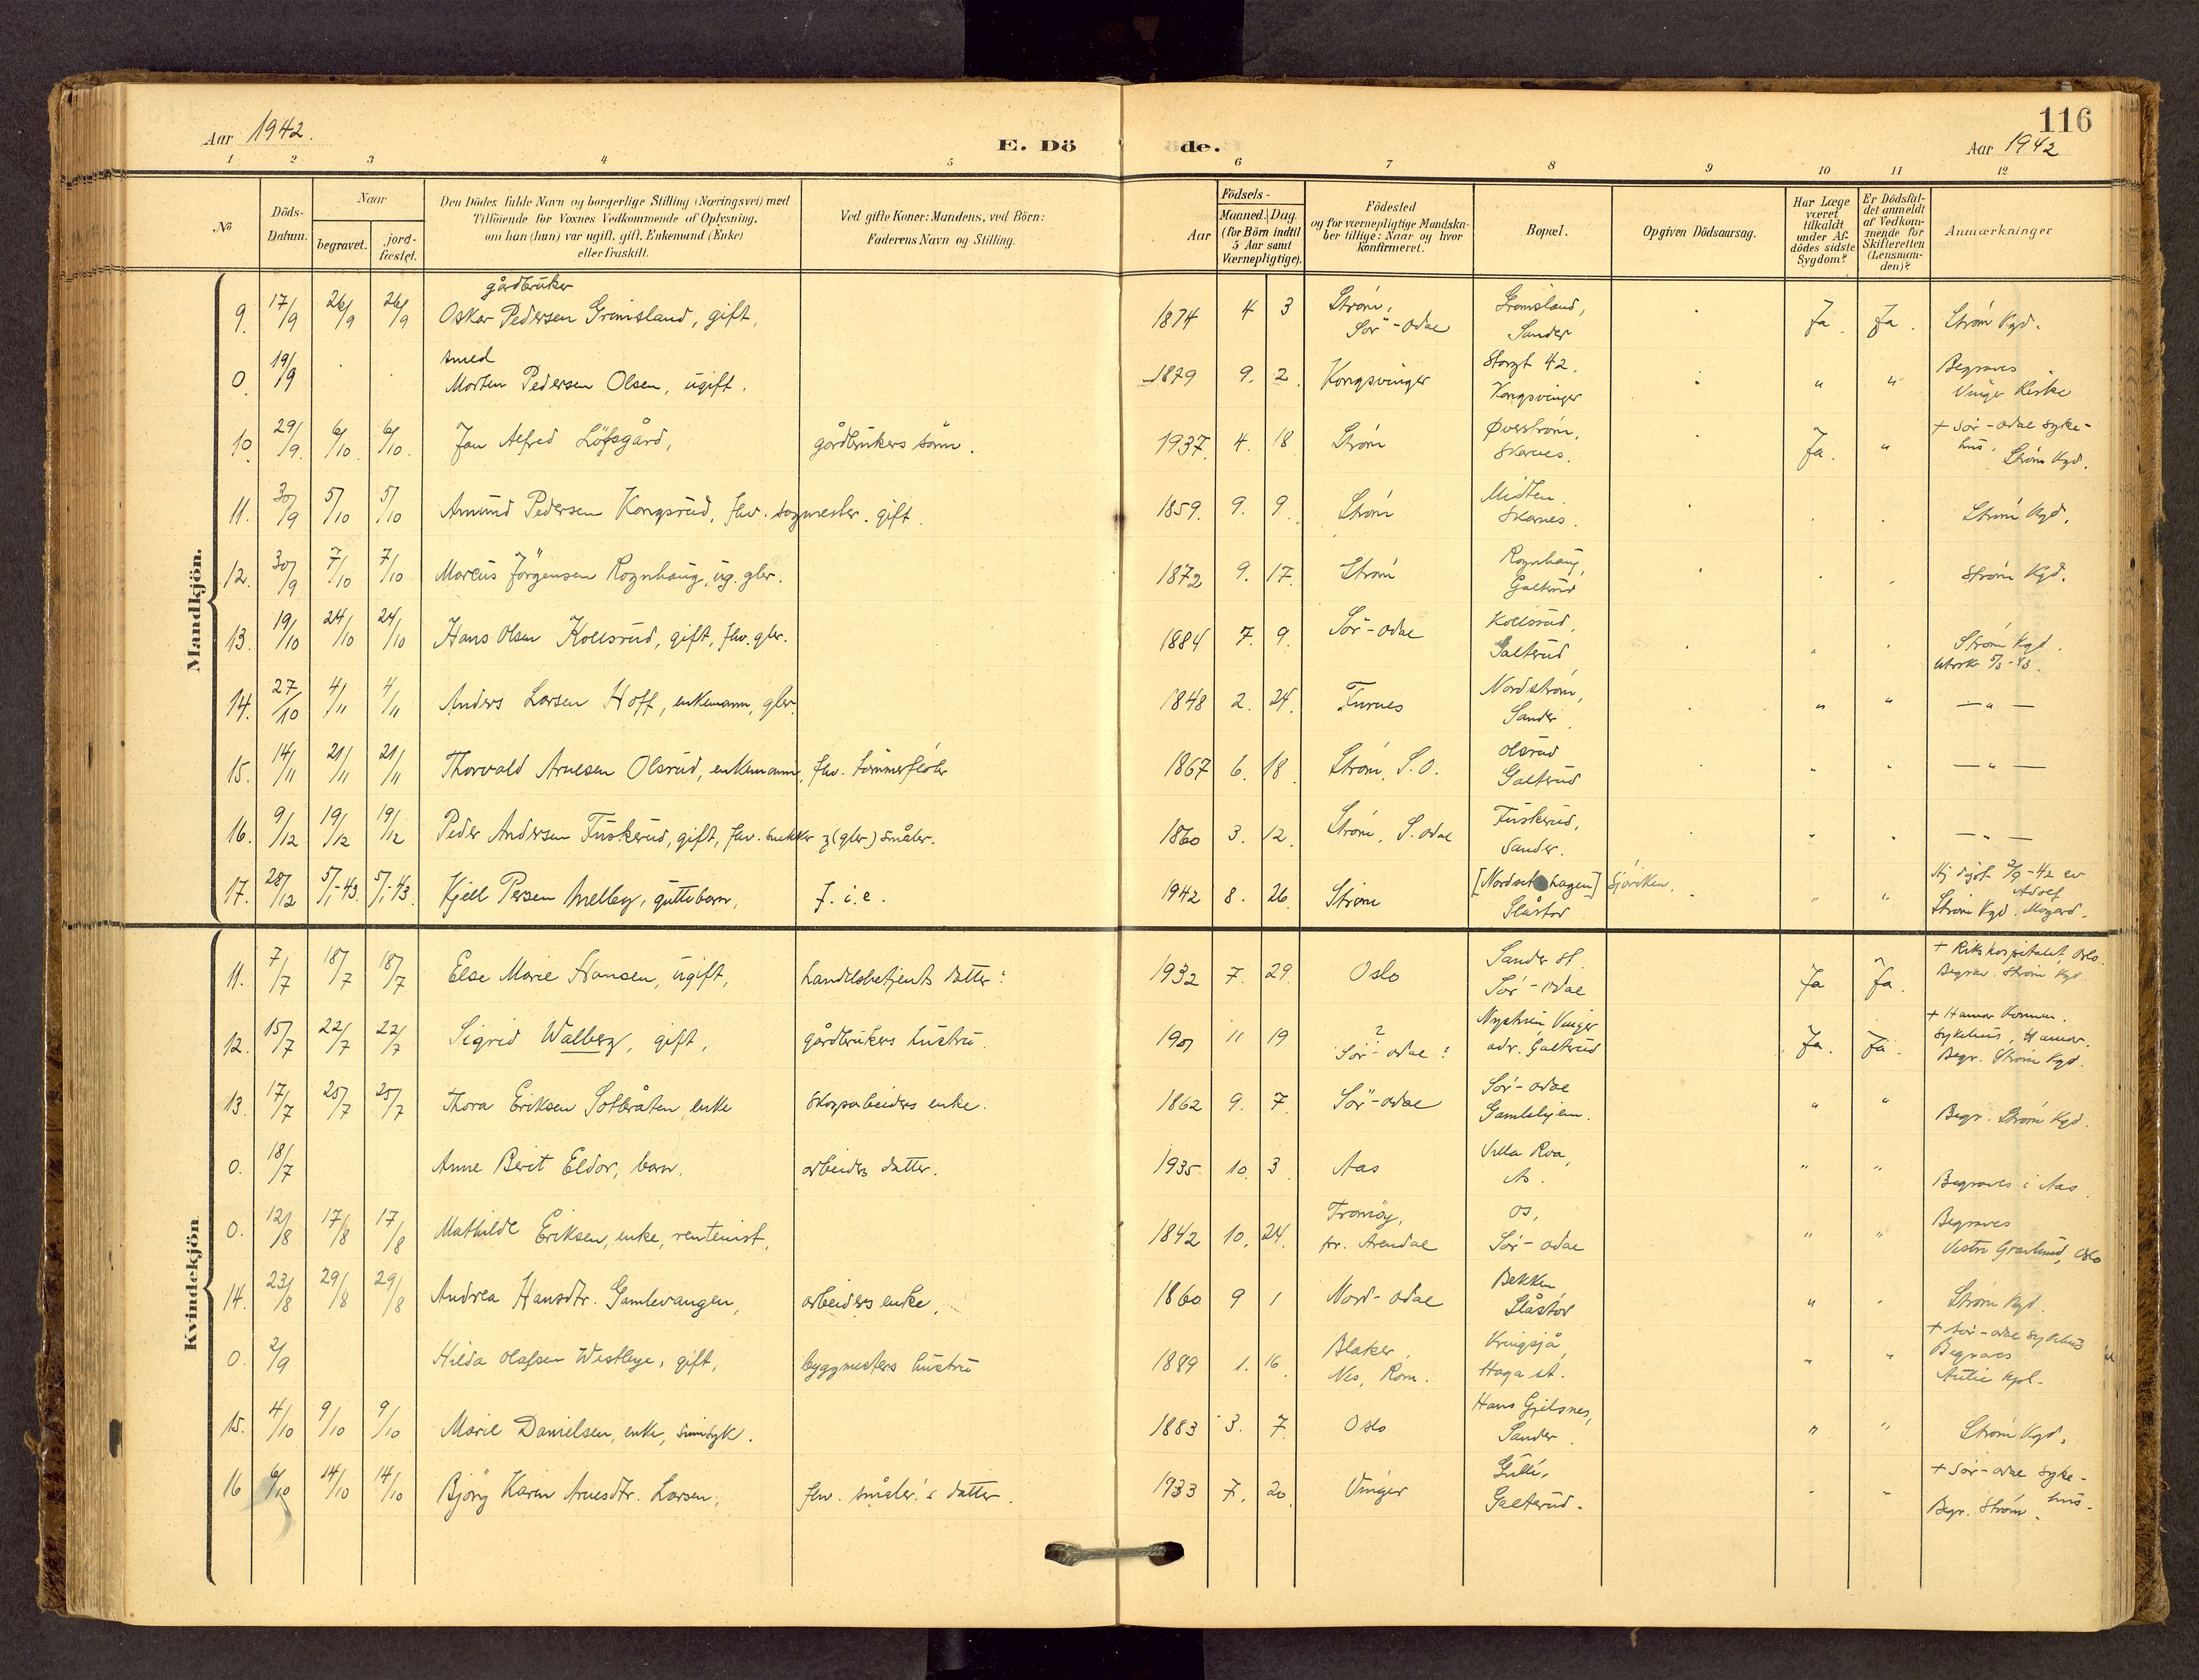 116
Aar 1942.
E. Dö
de.
Aar 1942
1 2 3 4 5 6 7 8 9 10 11 12
No
Döds-Datum.
Naar
begravet.
jord-fæstet.
Den Dödes fulde Navn og borgerlige Stilling (Næringsvei) med
Tilföiende for Voxnes Vedkommende af Oplysning,
om han (hun) var ugift, gift, Enkemand (Enke)
eller fraskilt.
Ved gifte Koner: Mandens, ved Börn:
Faderens Navn og Stilling.
Födsels-
Aar
Maaned.
Dag.
(for Börn indtil
5 Aar samt
Værnepligtige).
Födested
og for værnepligtige Mandska-
ber tillige: Naar og hvor
konfirmeret.
Bopæl.
Opgiven Dödsaarsag.
Har Læge
været
tilkaldt
under Af-
dödes sidste
Sygdom?
Er Dödsfal-
det anmeldt
af Vedkom-
mende for
Skifteretten
(Lensman-
den)?
Anmærkninger
Mandkjön.
9. 17/9 26/9 26/9 gårdbruker Oskar Pedersen Grimsland, gift. 1874 4 3 Strøm, Sør-Odal Grimsland, Sander Ja. Ja. Strøm Kgd.
0. 19/9 smed Morten Pedersen Olsen, ugift. 1879 9. 2. Kongsvinger Storgt 42, Kongsvinger " " Begraves Vinger Kirke
10. 29/9. 6/10. 6/10. Jan Alfred Löfsgård, gårdbrukers sønn. 1937. 4. 18 Strøm Øverstrøm, Skarnes. Ja. " + Sør-Odal sykehus, Strøm Kgd.
11. 30/9 5/10 5/10 Amund Pedersen Kongsrud, fhv. sagmester. gift. 1859. 9. 9. Strøm Midten. Skarnes. Strøm Kgd.
12. 30/9 7/10 7/10 Marcus Jörgensen Rognhaug, ug. gbr. 1872 9. 17. Strøm Rognhaug, Galterud Strøm Kgd.
13. 19/10 24/10 24/10 Hans Olsen Kollsrud, gift, fhv. gbr. 1884 7. 9. Sør-Odal Kollsrud, Galterud Strøm Kgd. 5/3-43.
14. 27/10 4/11 4/11 Anders Larsen Hoff, enkemann, gbr. 1848 2. 24. Furnes Nordstrøm, Sander. " " — " —
15. 14/11 21/11 21/11 Thorvald Arnesen Olsrud, enkemann, fhv. tømmerfløter 1867 6. 18. Strøm, S.O. Olsrud Galterud " " — " —
16. 9/12 19/12 19/12 Peder Andersen Fuskerud, gift, fhv. snekker & (gbr) småbr. 1860 3. 12. Strøm, S. Odal Fuskerud, Sander. " " — " —
17. 28/12 5/1-43. 5/1-43. Kjell Persen Melby, guttebarn, f. i. e. 1942 8. 26. Strøm [Nordset hagen] Slåstad Sjursken. " " Hj. døpt 2/9-42 av Adolf Mogard. Strøm Kgd.
Kvindekjön
11. 7/7 18/7 18/7 Else Marie Hansen, ugift, handelsbetjents datter. 1932 7. 29. Oslo Sander st. Sør-Odal Ja Ja. + Rikshospitalet Oslo. Begrav. Strøm Kgd.
12. 15/7 22/7 22/7 Sigrid Walberg, gift, gårdbrukers hustru. 1901 11 19 ? Sør-Odal? Nystuen, Vinger adr. Galterud Ja. Ja. + Hamar Kommun. sykehus, Hamar. Begr. Strøm Kgd.
13. 17/7 25/7 25/7 Thora Eriksen Sotbråten, enke skogsarbeiders enke. 1862 9. 7. Sør-Odal Sør-Odal Gamlehjem. " " Begr. Strøm Kgd.
0. 18/7 Anne Berit Eldor, barn, arbeiders datter. 1935 10. 3. Aas Villa Roa, Ås. " " Begraves i Aas.
0. 12/8 17/8 17/8 Mathilde Eriksen, enke, rentenist, 1842 10. 24. Tromøy, pr. Arendal Os, Sør-Odal " " Begraves Vestre Gravlund, Oslo
14. 23/8 29/8 29/8 Andrea Hansdtr. Gamlevangen, arbeiders enke, 1860 9 1 Nord-Odal Bekken Slåstad " " Strøm Kgd.
0. 2/9 Hilda Olafsen Westbye, gift, byggmesters hustru 1889 1. 16. Blaker, Nes, Rom. Kringsjå Haga st. " " + Sør-Odal sykehus Begraves Autli Kpl.
15. 4/10 9/10 9/10 Marie Danielsen, enke, sinnsyk. 1883 3. 7. Oslo Hans Gjelsnes, Sander. " " Strøm Kgd.
16 6/10 14/10 14/10 Bjørg Karin Arnesdtr. Larsen, fhv. småbr.'s datter. 1933 7. 20. Vinger Gulli, Galterud. " " + Sør-Odal sykehus. Begr. Strøm.